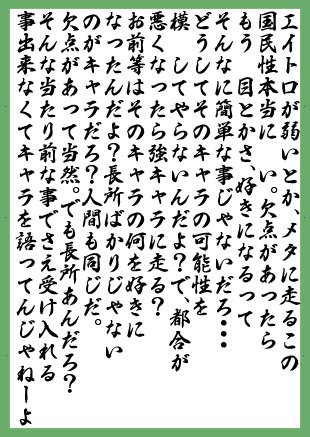 エイトロが弱いとか、メタに走るこの
国民性本当に い。欠点があったら
もう 目とかさ、好きになるって
そんなに簡単な事じゃないだろ・・・
どうしてそのキャラの可能性を
模 してやらないんだよ?で、都合が
悪くなったら強キャラに走る?
お前等はそのキャラの何を好きに
なったんだよ?長所ばかりじゃない
のがキャラだろ?人間も同じだ。
欠点があって当然。でも長所あんだろ?
そんな当たり前な事でさえ受け入れる
事出来なくてキャラを語ってんじゃねーよ